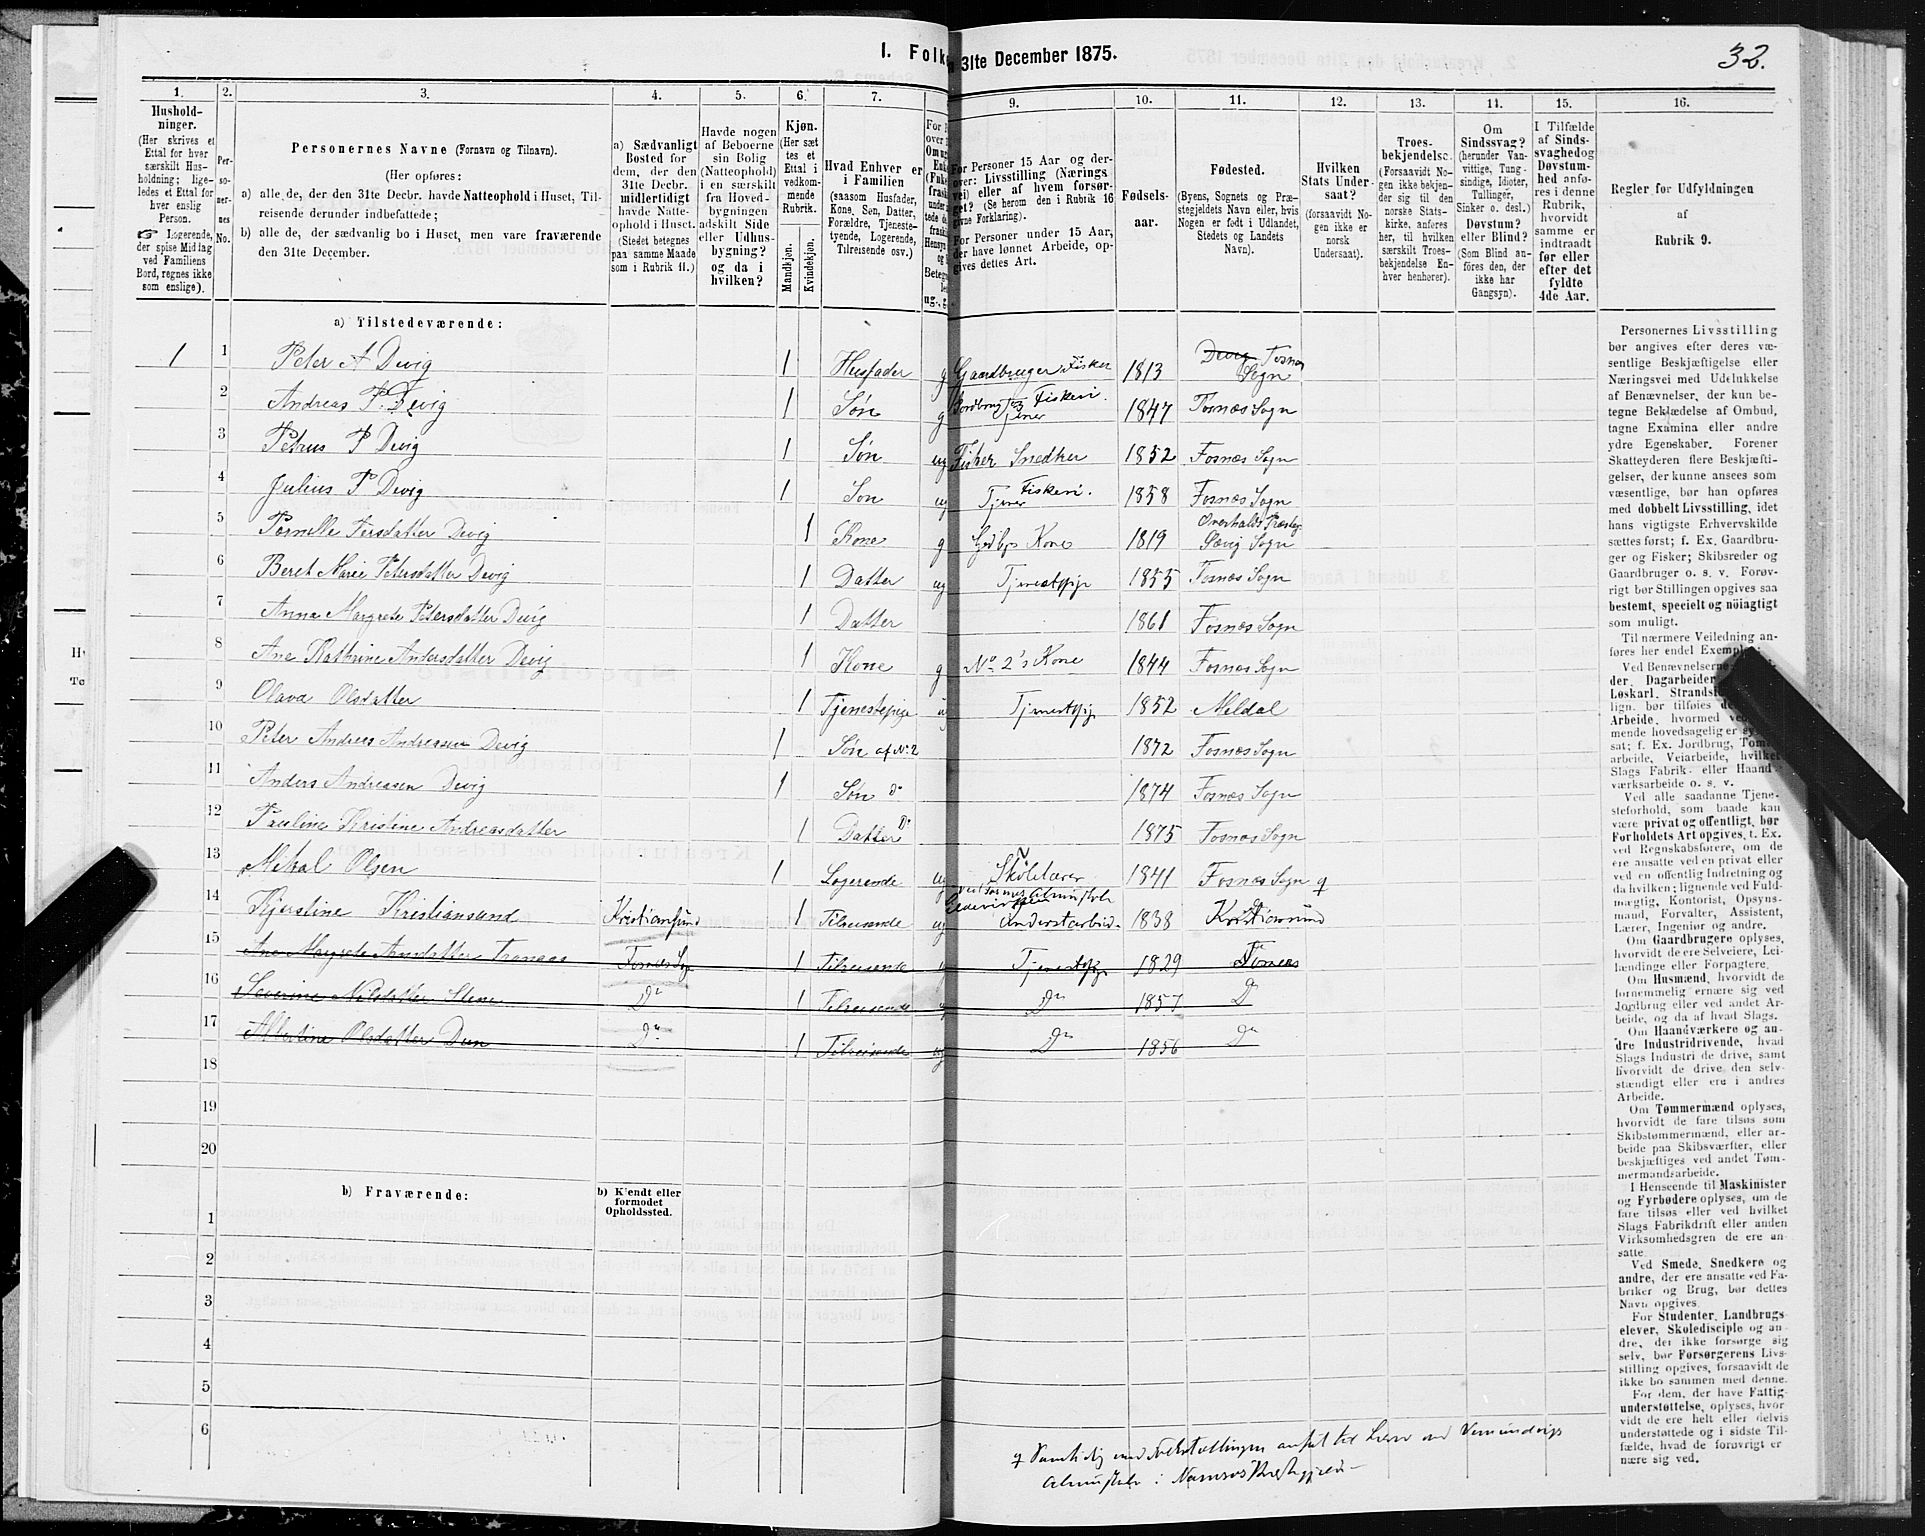 32.
I. Folk
31te December 1875.
1.
2.
3.
4.
5.
6.
7.
9.
10.
11.
12.
13.
14.
15.
16.
Hushold-
ninger.
(Her skrives et
Ettal for hver
særskilt Hus-
holdning; lige-
ledes et Ettal for
hver enslig
Person.
Logerende,
der spise Middag
ved Familiens
Bord, regnes ikke
som enslige).
Per-
so-
ner-
nes
No.
Personernes Navne (Fornavn og Tilnavn).
(Her opføres:
a) alle de, der den 31te Decbr. havde Natteophold i Huset, Til-
reisende derunder indbefattede;
b) alle de, der sædvanlig bo i Huset, men vare fraværende
den 31te December.
a) Sædvanligt
Bosted for
dem, der den
31te Decbr.
midlertidigt
havde Natte-
ophold i Huset.
(Stedet betegnes
paa samme Maade
som i Rubrik 11.)
Havde nogen
af Beboerne
sin Bolig
(Natteophold)
i en særskilt
fra Hoved-
bygningen
adskilt Side
eller Udhus-
bygning?
og da i
hvilken?
Kjøn.
(Her sæt
tes et
Ettal i
vedkom-
mende
Rubrik.
Mandkjøn.
Kvindekjøn.
Hvad Enhver er
i Familien
(saasom Husfader,
Kone, Søn, Datter,
Forældre, Tjeneste-
tyende, Logerende,
Tilreisende osv.)
For Personer 15 Aar og der-
over: Livsstilling (Nærings
vei) eller af hvem forsør-
get? (Se herom den i Rubrik 16
givne Forklaring).
For Personer under 15 Aar,
der have lønnet Arbeide, op-
gives dettes Art.
Fødsels-
aar.
Fødested.
(Byens, Sognets og Præ-
stegjeldets Navn eller, hvis
Nogen er født i Udlandet,
Stedets og Landets
Navn).
Hvilken
Stats Under-
saat?
(forsaavidt No-
gen ikke er
norsk
Undersaat).
Troes-
bekjendelse.
(Forsaavidt No-
gen ikke bekjen-
der sig til den
norske Stats-
kirke, anføres
her, til hvilken
særskilt Troes-
bekjendelse En-
hver henhører).
Om
Sindssvag?
(herunder Van-
vittige, Tung-
sindige, Idioter,
Tullinger,
Sinker o. desl.)
Døvstum?
eller Blind?
(Som Blind an-
føres den, der
ikke har
Gangsyn).
I Tilfælde
af Sinds-
svaghed og
Døvstum-
hed anfø-
res i denne
Rubrik,
hvorvidt
samme er
indtraadt
før eller
efter det
fyldte
4de Aar.
Regler for Udfyldningen
af
Rubrik 9.
a) Tilstedeværende:
1 1 Peter A Devig 1 Husfader g Gaardbruger Fisker 1813 Devig Fosnæs Sogn
2 Andreas P. Devig 1 Søn g Jordbrug Fiskeri. Tjener 1847 Fosnæs Sogn
3 Petrus P Devig 1 Søn ug Fisker Snedker 1852 Fosnæs Sogn
4 Julius P Devig 1 Søn ug Tjener Fiskeri. 1858 Fosnæs Sogn
5 Devig 1 Kone g Gdbgs Kone 1819 Overhalds Præstegj Sævig Sogn
6 Beret Marie Petersdatter Devig 1 Datter ug Tjenestpige 1855 Fosnæs Sogn
7 Anna Margrete Petersdatter Devig 1 Datter 1861 Fosnæs Sogn
8 Ane Kathrine Andersdatter Devig 1 Kone g No 2's Kone 1844 Fosnæs Sogn
9 Olava Olsdatter 1 Tjenestepige ug Tjenestpige 1852 Meldal
10 Peter Andreas Andreassen Devig 1 Søn af No 2 1872 Fosnæs Sogn
11 Anders Andreasen Devig 1 Søn do 1874 Fosnæs Sogn
12 Pauline Kristine Andreasdatter 1 Datter Do 1875 Fosnæs Sogn
13 Mekal Olsen 1 Logerende ug Skolelærer 1841 Fosnæs Sogn
14 Kjerstine Kristiansund Kristiansund 1 Tilreisende ug 1838 Kristiansund
15 Ane Margrete Arnsdatter Tranaas Fosnæs Sogn 1 Tilreisende ug Tjenestpige 1829 Fosnæs
16 Severine Nilsdatter Stene Do 1 Tilreisende ug Do 1857 D
17 Albertine Olsdatter Duun Do 1 Tilreisende ug Do 1856 Do
18
19
20
b) Fraværende:
b) Kjendt eller
formodet
Opholdssted.
1
2
3
4
5
6
Personernes Livsstilling
bør angives efter deres væ-
sentlige Beskjæftigelse eller
Næringsvei med Udelukkelse
af Benævnelser, der kun be-
tegne Beklædelse af Ombud,
tagne Examina eller andre
ydre Egenskaber. Forener
Skatteyderen flere Beskjæfti-
gelser, der kunne ansees som
væsentlige, bør han opføres
med dobbelt Livsstilling, idet
hans vigtigste Erhvervskilde
sættes først; f. Ex. Gaardbru-
ger og Fisker; Skibsreder og
Gaardbruger o. s. v. Forøv-
rigt bør Stillingen opgives saa
bestemt, specielt og nøiagtigt
som muligt.
Til nærmere Veiledning an-
føres her endel Exemp
Ved Benævnelserne
der, Dagarbeider
Løskarl, Strands
lign. bør tilføies
Arbeide, hvormed
mende hovedsagelig er sy
sat; f. Ex. Jordbrug, Tom
arbeide, Veiarbeide, hvilket
Slags Fabrik- eller Haand-
værksarbeide o. s. v.
Ved alle saadanne Tjene-
steforhold, som baade kan
være privat og offentligt, bør
Forholdets Art opgives, t. Ex.
ved Regnskabsførere, om de
ere ansatte ved en privat eller
ved en offentlig Indretning og
da hvilken; lignende ved Fuld-
mægtig, Kontorist, Opsyns-
mand, Forvalter, Assistent,
Lærer, Ingeniør og andre.
Om Gaardbrugere oplyses,
hvorvidt de ere Selveiere, Lei-
lændinge eller Forpagtere.
Om Husmænd, hvorvidt de
fornemmelig ernære sig ved
Jordbrug eller ved andet Ar-
beide, og da af hvad Slags.
Om Haandværkere og an-
dre Industridrivende, hvad
Slags Industri de drive, samt
hvorvidt de drive den selv-
stændigt eller ere i andres
Arbeide.
Om Tømmermænd oplyses,
hvorvidt de fare tilsøs som
Skibstømmermænd, eller ar-
beide paa Skibsværfter, eller
beskjæftiges ved andet Tøm-
mermandsarbeide.
I Henseende til Maskinister
og Fyrbødere oplyses, om de
fare tilsøs eller ved hvilket
Slags Fabrikdrift eller anden
Virksomhedsgren de ere an-
satte.
Ved Smede, Snedkere og
andre, der ere ansatte ved Fa-
briker og Brug, bør dettes
Navn opgives.
For Studenter, Landbrugs-
elever, Skoledisciple og an-
dre, der ikke forsørge sig
selv, bør Forsørgerens Livs-
stilling opgives, forsaavidt de
ikke bo sammen med denne.
For dem, der have Fattig-
understøttelse, oplyses, hvor
vidt de ere helt eller delvis
understøttede og i sidste Til-
fælde, hvad de forøvrigt er
nære sig ved.
Samtidig med Folketællingen ansat til Lærer ved Vemundvigs
Almuskole i Namsos Præstegjeld